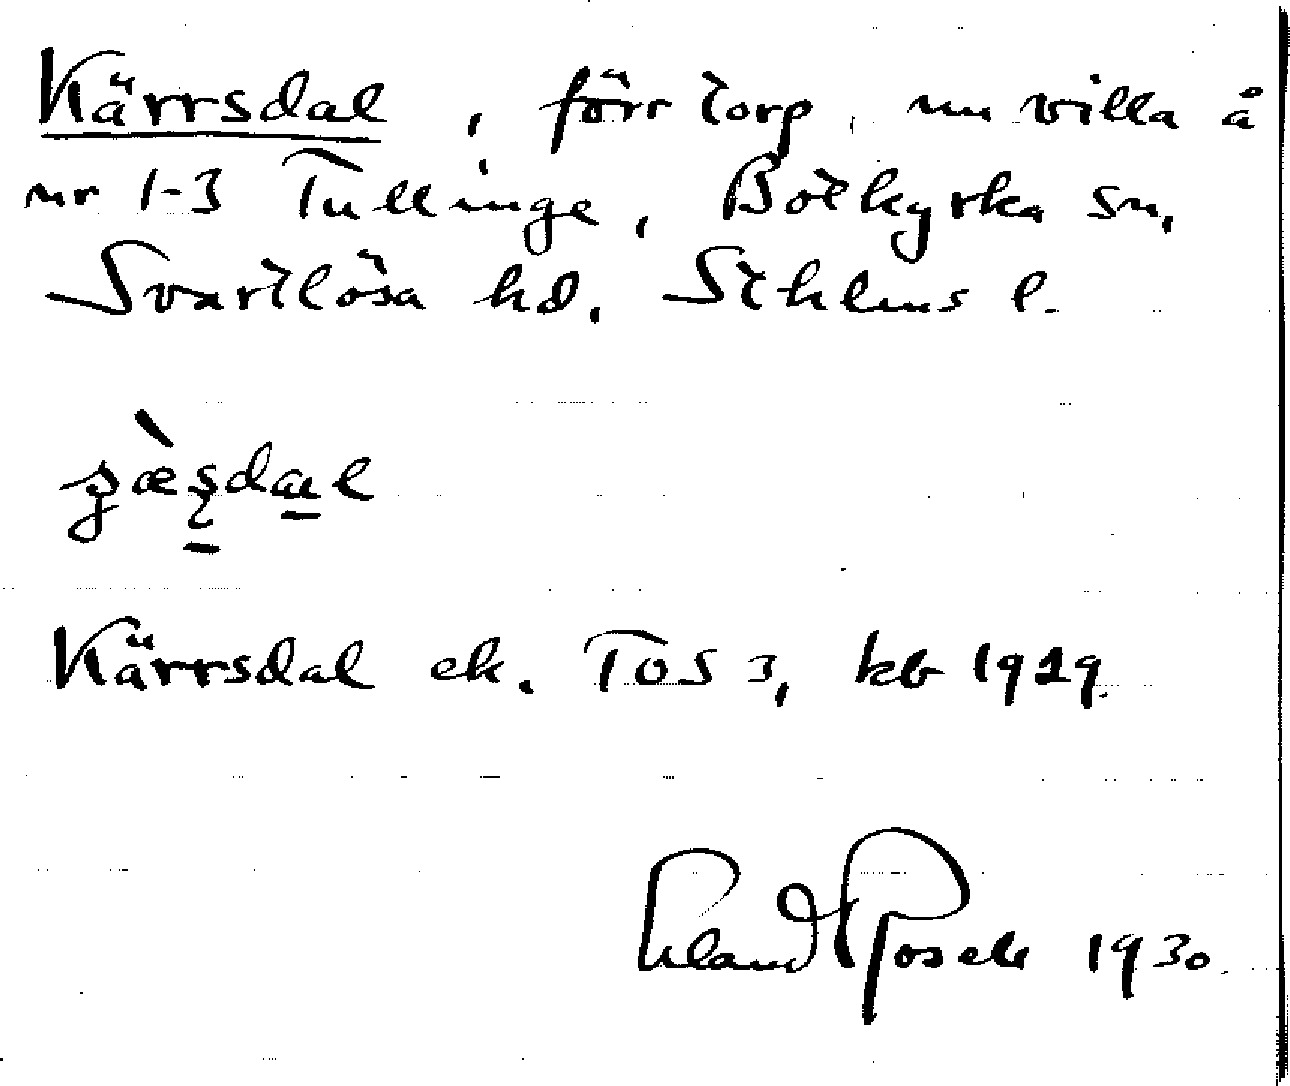 Kärrsdal, förr torp, nu villa å
nr 1-3 Tullinge, Botkyrka sn,
Svartlösa hd, Sthlms l.
Kärrsdal ek. TOS 3, kb 1929.
Erland Rosell 1930